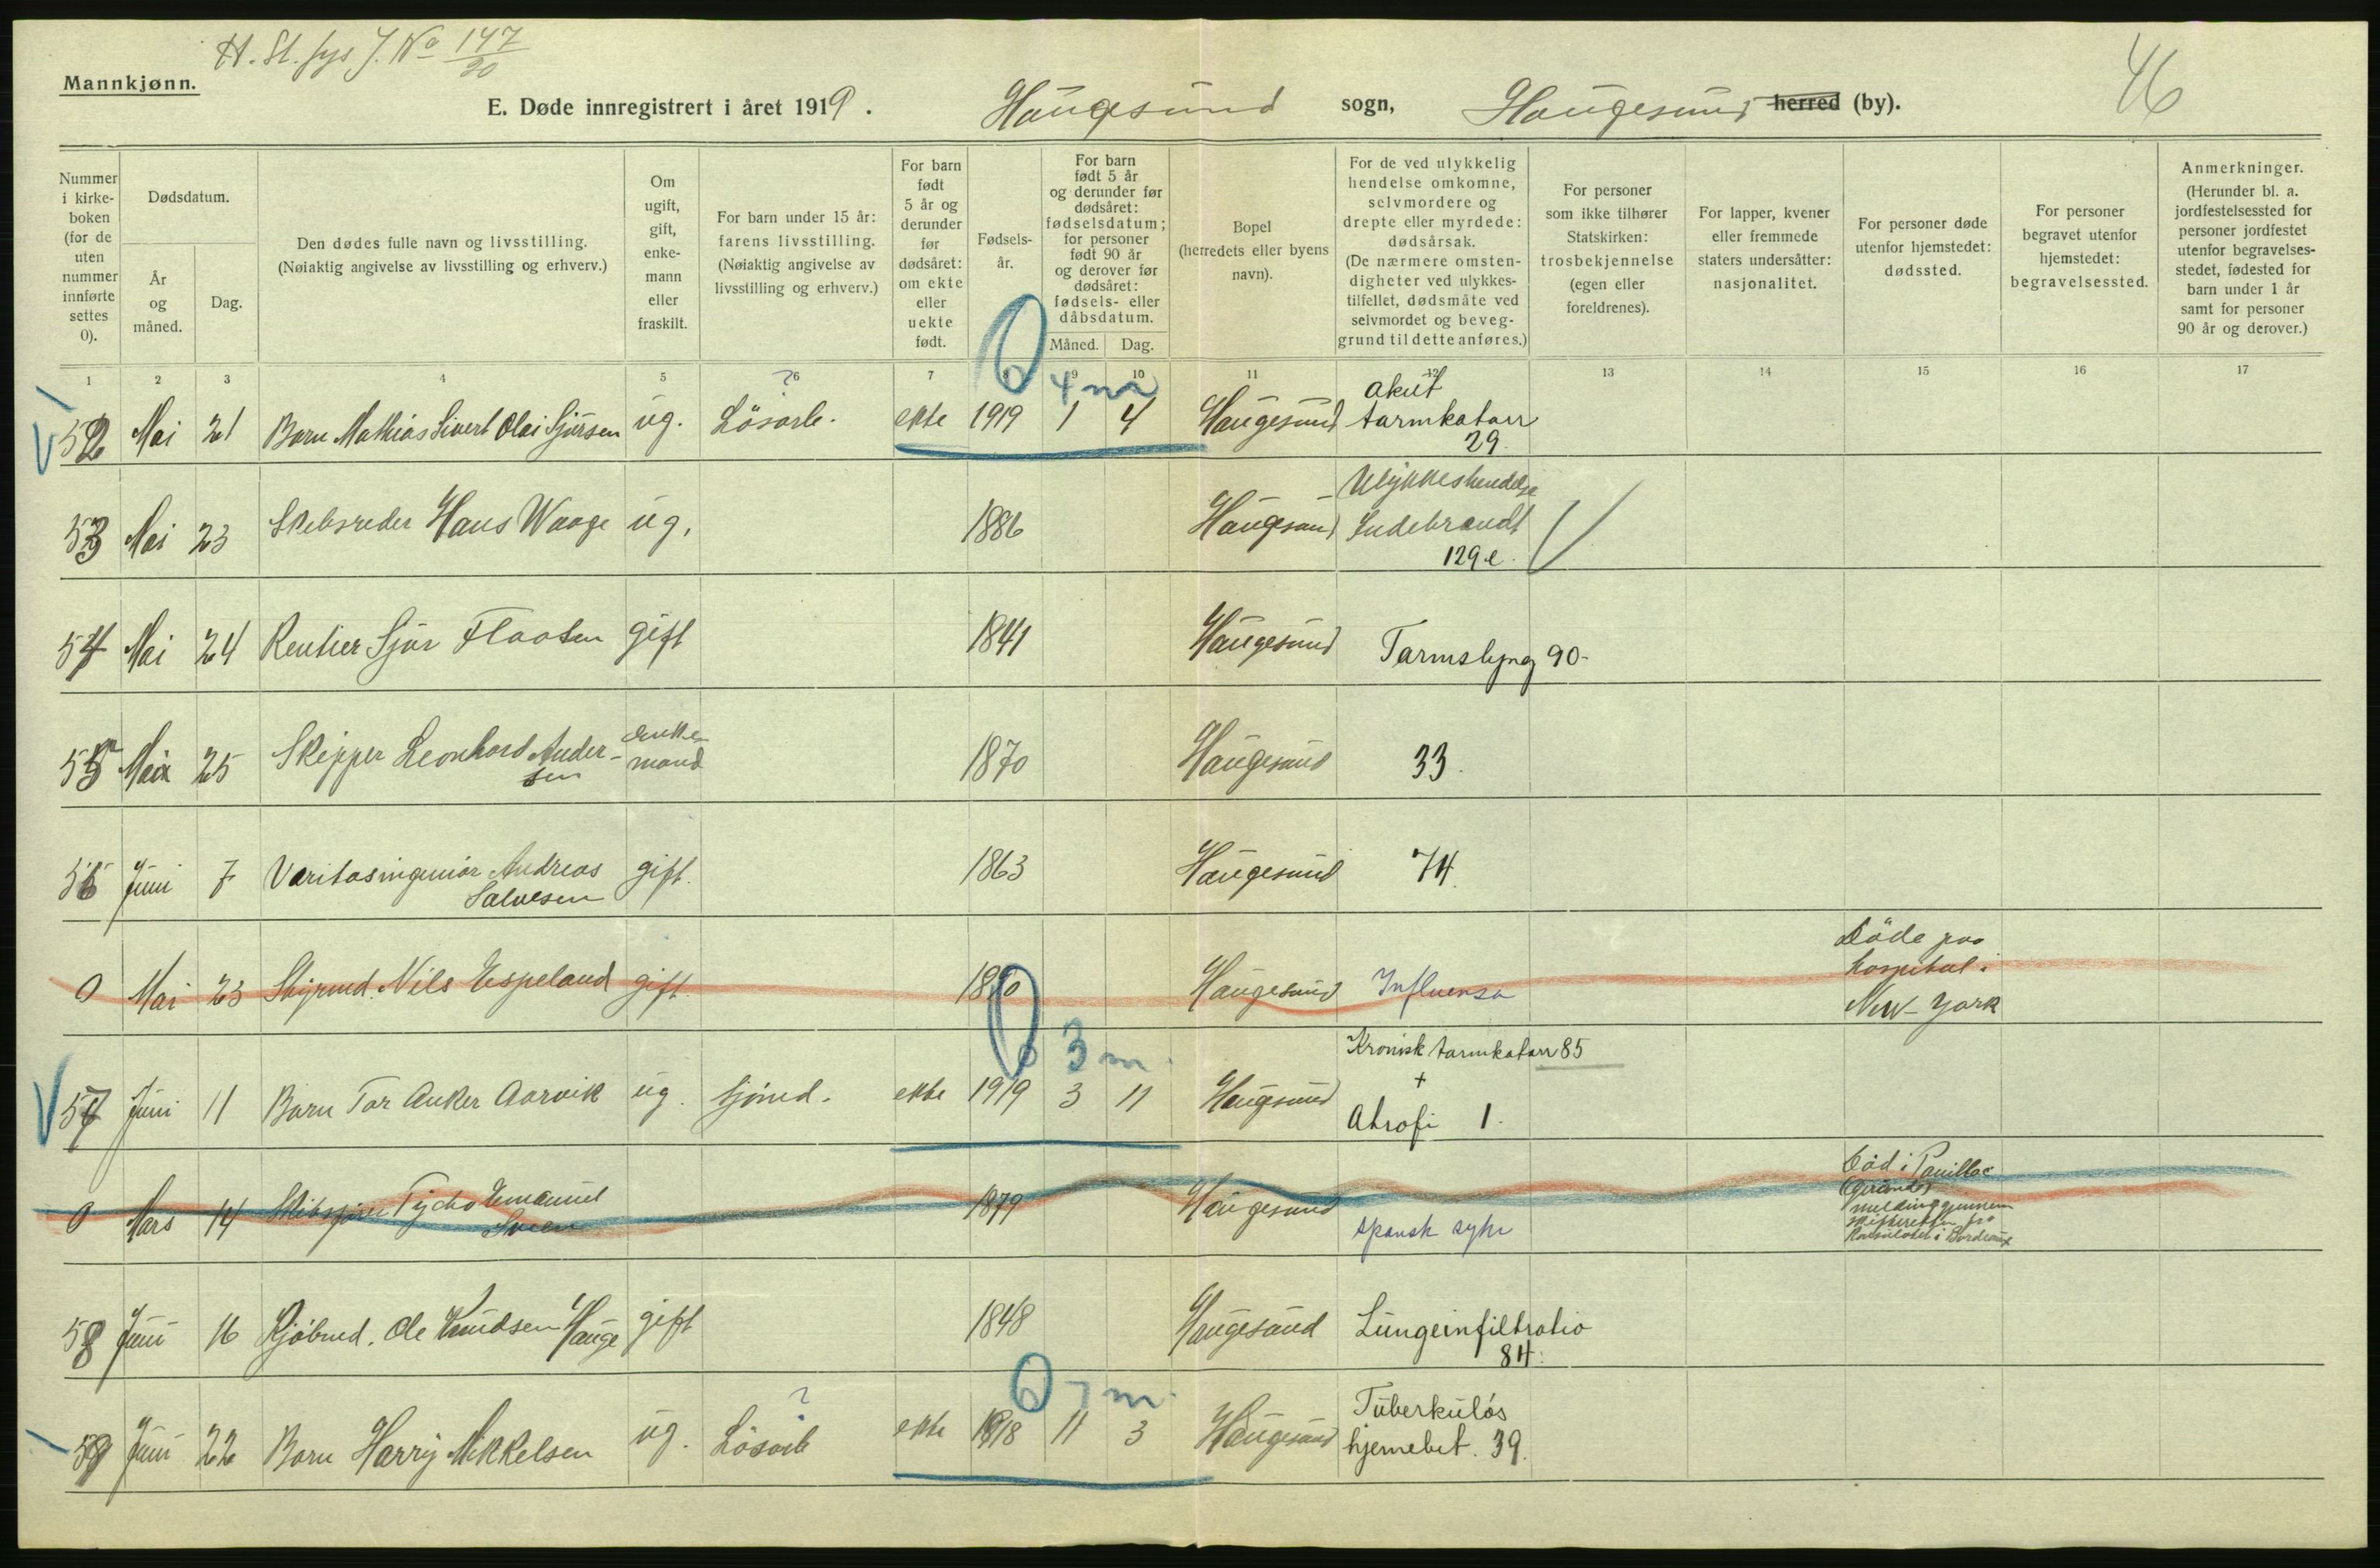 H. St. sys J. No 147/20
46
Mannkjønn.
E. Døde innregistrert i året 1919. Haugesund sogn, Haugesund herred (by).
Nummer i kirkeboken (for de uten nummer innførte settes 0).
Dødsdatum.
År og måned.
Dag.
Den dødes fulle navn og livsstilling. (Nøiaktig angivelse av livsstilling og erhverv.)
Om ugift, gift, enkemann eller fraskilt.
For barn under 15 år: farens livsstilling. (Nøiaktig angivelse av livsstilling og erhverv.)
For barn født 5 år og derunder før dødsåret: om ekte eller uekte født.
Fødselsår.
For barn født 5 år og derunder før dødsåret: fødselsdatum; for personer født 90 år og derover før dødsåret: fødsels- eller dåbsdatum.
Måned. Dag.
Bopel (herredets eller byens navn).
For de ved ulykkelig hendelse omkomne, selvmordere og drepte eller myrdede: dødsårsak. (De nærmere omstendigheter ved ulykkestilfellet, dødsmåte ved selvmordet og beveggrund til dette anføres.)
For personer som ikke tilhører Statskirken: trosbekjennelse (egen eller foreldrenes).
For lapper, kvener eller fremmede staters undersåtter: nasjonalitet.
For personer døde utenfor hjemstedet: dødssted.
For personer begravet utenfor hjemstedet: begravelsessted.
Anmerkninger. (Herunder bl. a. jordfestelsessted for personer jordfestet utenfor begravelsesstedet, fødested for barn under 1 år samt for personer 90 år og derover.)
1 2 3 4 5 6 7 8 9 10 11 12 13 14 15 16 17
0 4 m
52 Mai 21 Barn Mathias Sivert Olai Sjursen ug. Lösarb. ekte 1919 1 4 Haugesund akut tarmkatarr 29.
53 Mai 23 Skebsreder Hans Waage ug. 1886 Haugesund Ulykkeshendelse Indebrandt 129 e.
54 Mai 24 Rentier Sjur Flaaten gift 1841 Haugesund Tarmslyng 90-
55 Mai 25 Skipper Leonhard Andersen enkemand 1870 Haugesund 33.
56 Juni 7 Veritasingeniør Andreas Salvesen gift. 1863 Haugesund 74.
0 Mai 23 Nils Espeland gift. Haugesund Influensa Döde paa hospital i New-York
0 3 m.
57 Juni 11 Barn Tor Anker Aarvik ug. Sjömd. ekte 1919 3 11 Haugesund Kronisk tarmkatarr 85 + Atrofi 1.
0 Mars 14 Tycho Emanuel Sveen 1879 Haugesund Spansk syke Död i Pauillac (Gironde) melding gjennem skifteretten fra Konsulatet i Bordeaux
58 Juni 16 Kjöbmd. Ole Knudsen Hauge gift 1848 Haugesund Lungeinfiltratio 84.
0 7 m.
59 Juni 22 Barn Harry Mikkelsen ug. Lösarb ekte 1918 11 3 Haugesund Tuberkuløs hjernebet. 39.